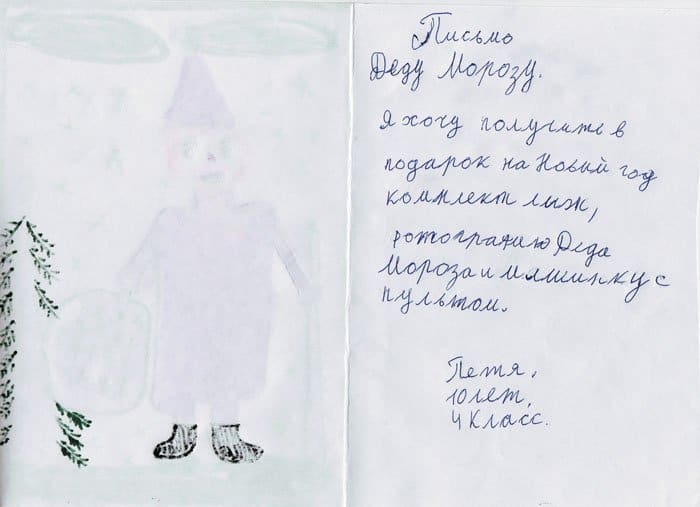 Письмо
Деду Морозу.
Я хочу получить в
подарок на Новый год
комплект лыж,
фотографию Деда
Мороза и машинку с
пультом.
Петя,
10 лет,
4 класс.